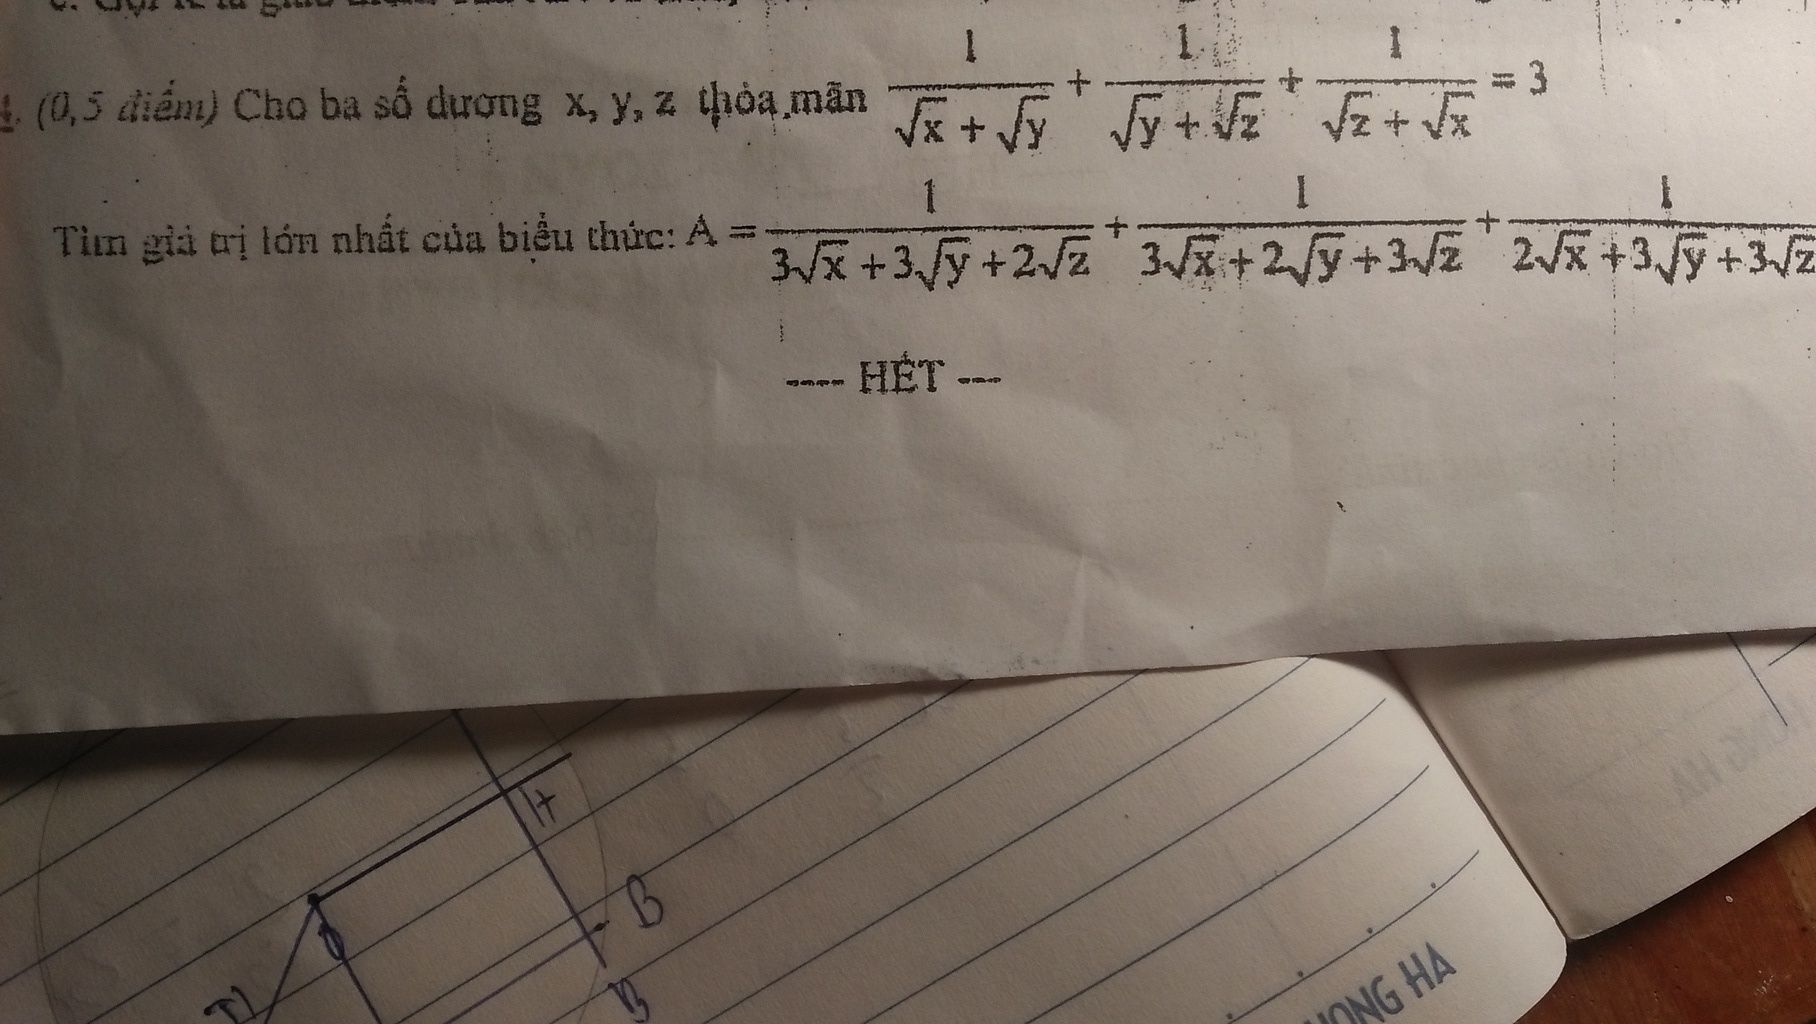 4. (0,5 điểm) Cho ba số dương x, y, z thỏa mãn 1/(√x + √y) + 1/(√y + √z) + 1/(√z + √x) = 3
Tìm giá trị lớn nhất của biểu thức: A = 1/(3√x + 3√y + 2√z) + 1/(3√x + 2√y + 3√z) + 1/(2√x + 3√y + 3√z
---- HẾT ---
H
B
O
B
HONG HA